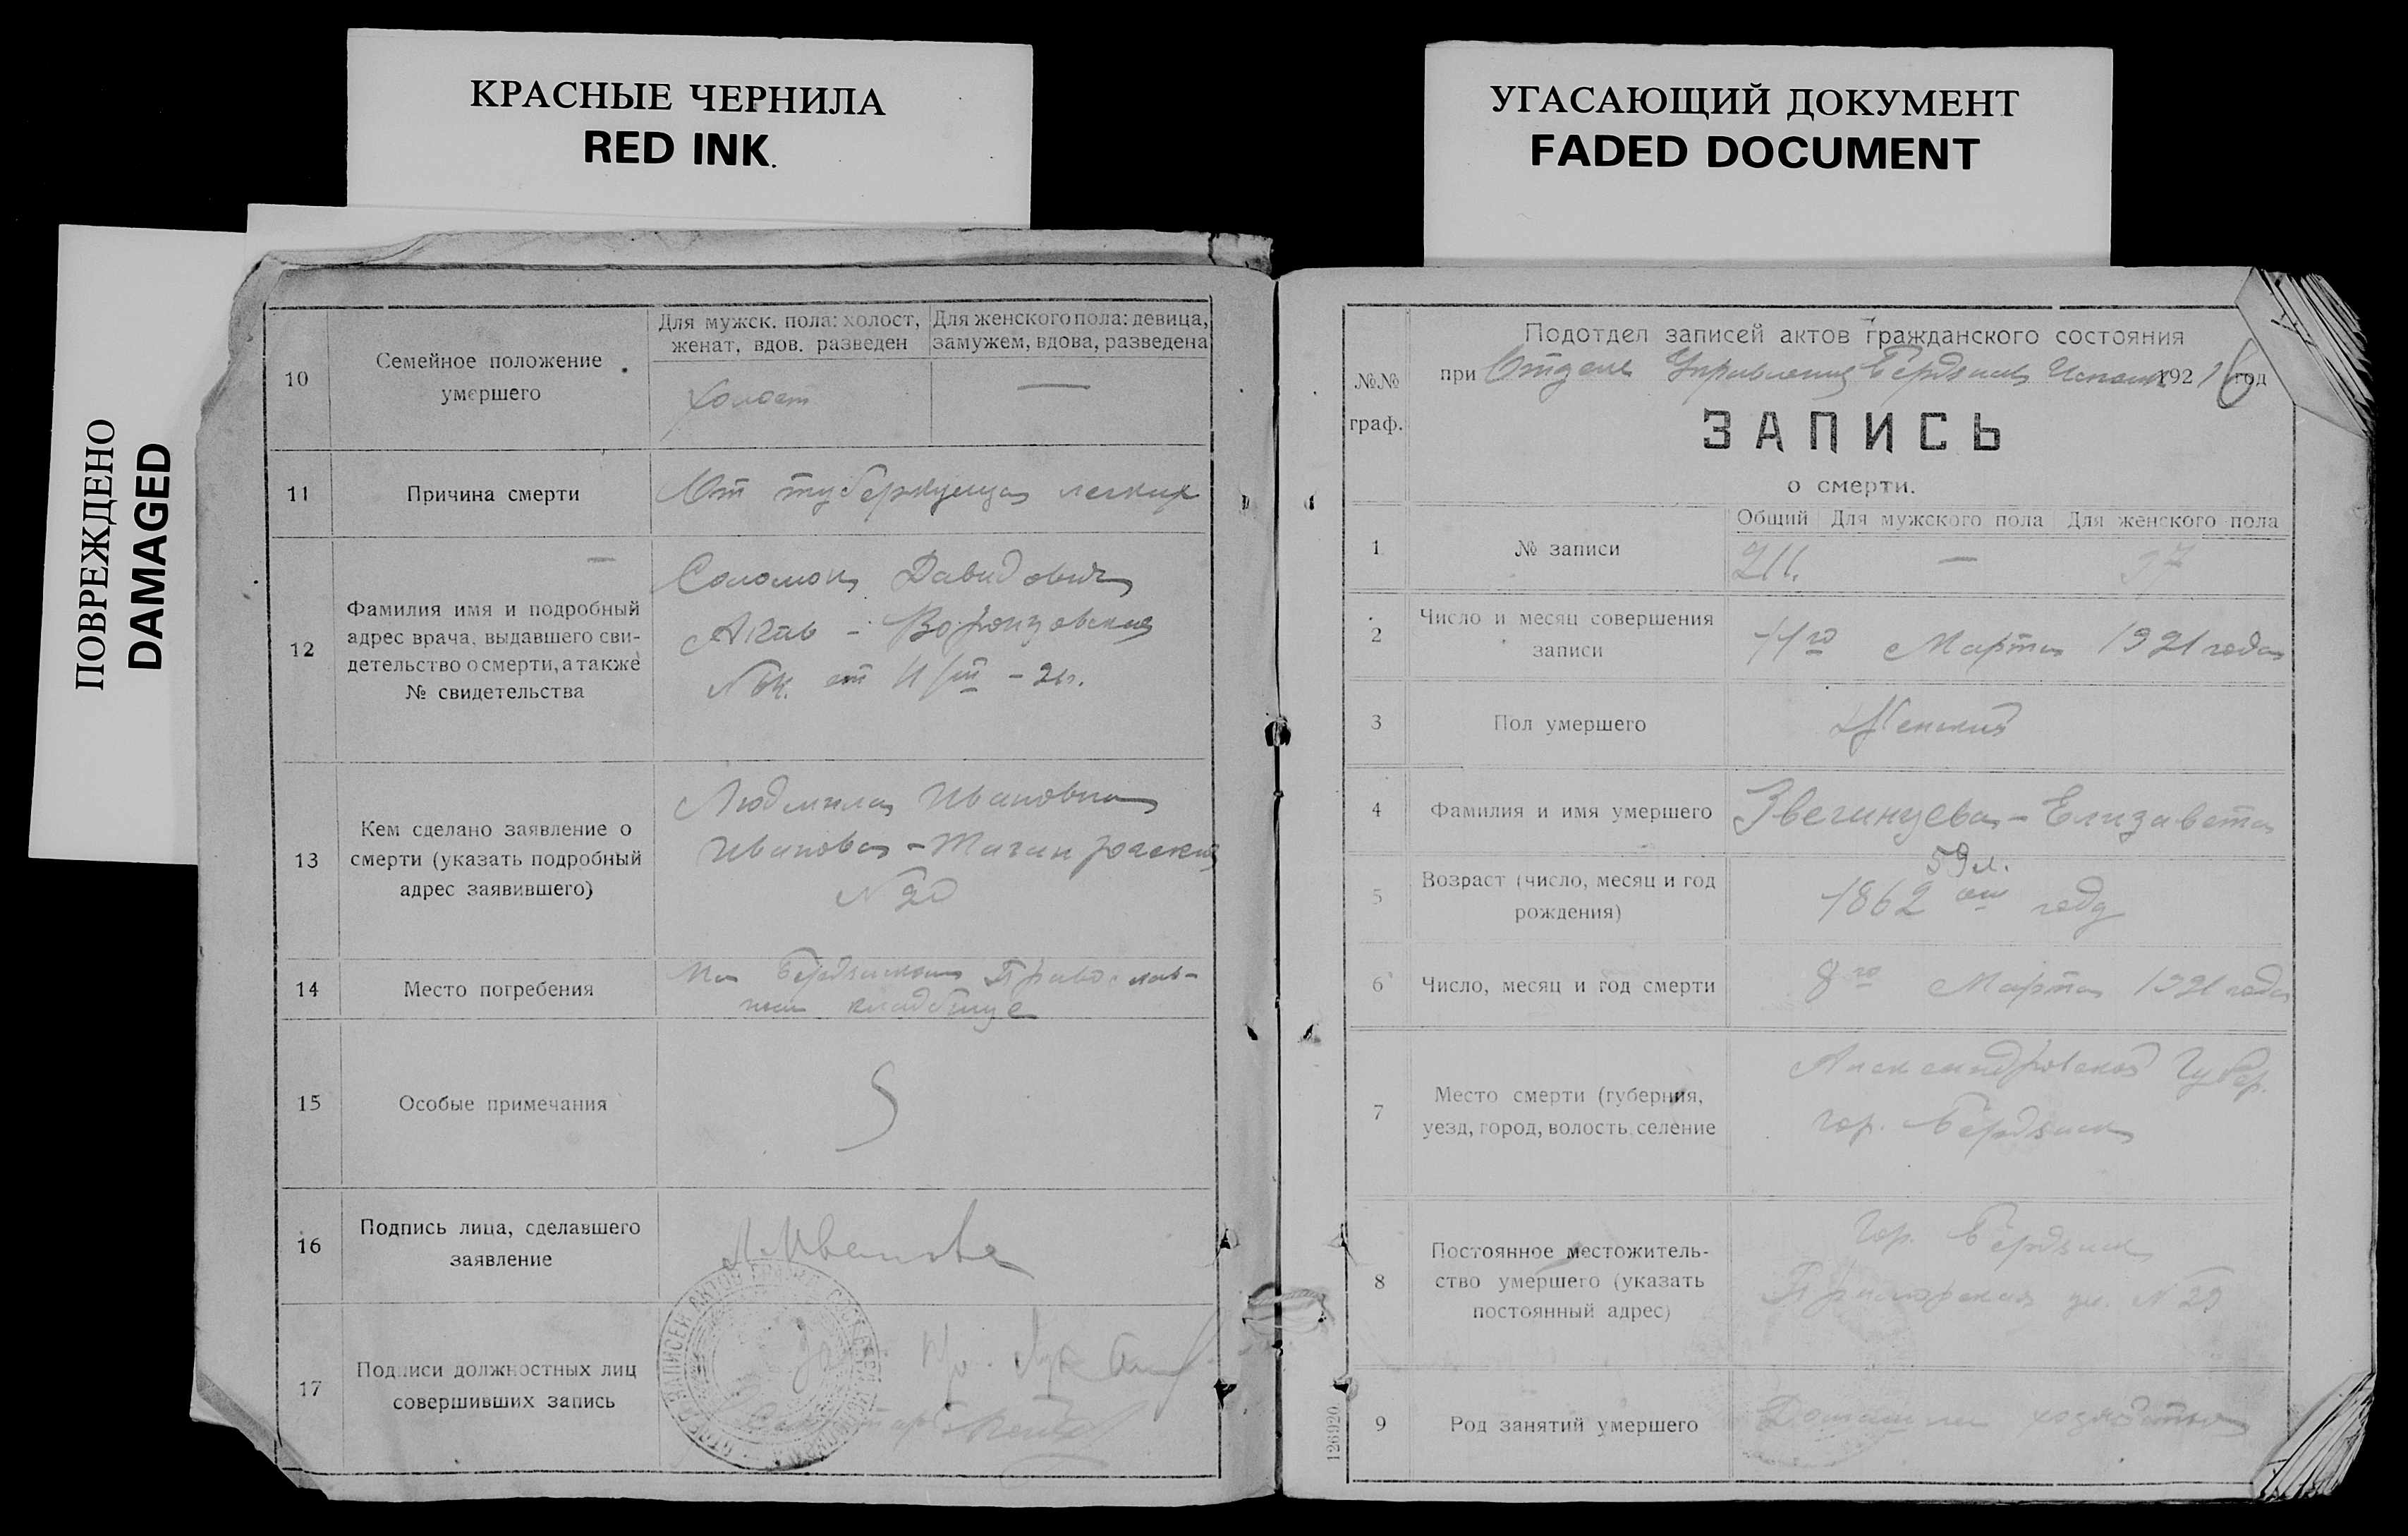 КРАСНЫЕ ЧЕРНИЛА
RED INK.
УГАСАЮЩИЙ ДОКУМЕНТ
FADED DOCUMENT
ПОВРЕЖДЕНО
DAMAGED
10
Семейное положение
умершего
Для мужск. пола: холост,
женат, вдов. разведен
Для женского пола: девица,
замужем, вдова, разведена
Холост
—
11
Причина смерти
От туберкулеза легких
12
Фамилия имя и подробный
адрес врача, выдавшего сви-
детельство о смерти, а также
№ свидетельства
Соломон Давидович
Воронцовская
от 11/III – 21г.
13
Кем сделано заявление о
смерти (указать подробный
адрес заявившего)
Людмила Ивановна
Иванова – Таганрогская
№ 20
14
Место погребения
На Бердянском Православ-
ном кладбище
15
Особые примечания
16
Подпись лица, сделавшего
заявление
Л. Иванова
17
Подписи должностных лиц
совершивших запись
№№
граф.
Подотдел записей актов гражданского состояния
при Отделе Управления Бердянск. Исполк. 1921 год
ЗАПИСЬ
о смерти.
1
№ записи
Общий
Для мужского пола
Для женского пола
211.
—
97
2
Число и месяц совершения
записи
11го Марта 1921 года
3
Пол умершего
Женский
4
Фамилия и имя умершего
Звегинцева – Елизавета
5
Возраст (число, месяц и год
рождения)
59 л.
1862 ом году
6
Число, месяц и год смерти
8го Марта 1921 года
7
Место смерти (губерния,
уезд, город, волость, селение
Александровской Губер.
гор. Бердянск
8
Постоянное местожитель-
ство умершего (указать
постоянный адрес)
Гор. Бердянск
Приморская ул. №
9
Род занятий умершего
Домашнее хозяйство
126920.